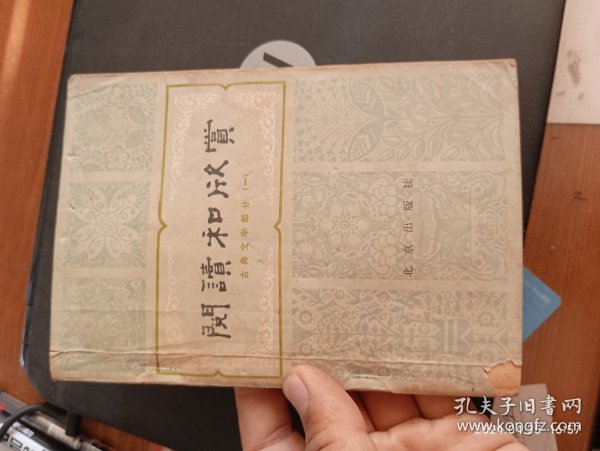 閱讀和欣赏
古典文学部分（一）
北京出版社
孔夫子旧书网
www.kongfz.com